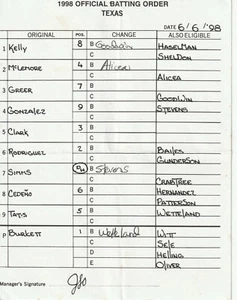 1998 OFFICIAL BATTING ORDER
TEXAS
DATE 6/6/98
ORIGINAL POS. CHANGE ALSO ELIGIBLE
1 Kelly 8 B Goodwin HASELMAN
C SHELDON
2 McLEMORE 4 B Alicea
C ALICEA
3 GREER 7 B
C GOODWIN
4 GONZALEZ 9 B STEVENS
C
5 CLARK 3 B
C
6 RODRIGUEZ 2 B BAILES
C GUNDERSON
7 SIMMS DH B Stevens
C CRABTREE
8 CEDEÑO 6 B HERNANDEZ
C PATTERSON
9 TATIS 5 B WETTELAND
C
P BURKETT 1 B Wetteland WITT
C SELE
D HELLING
E OLIVER
Manager's Signature